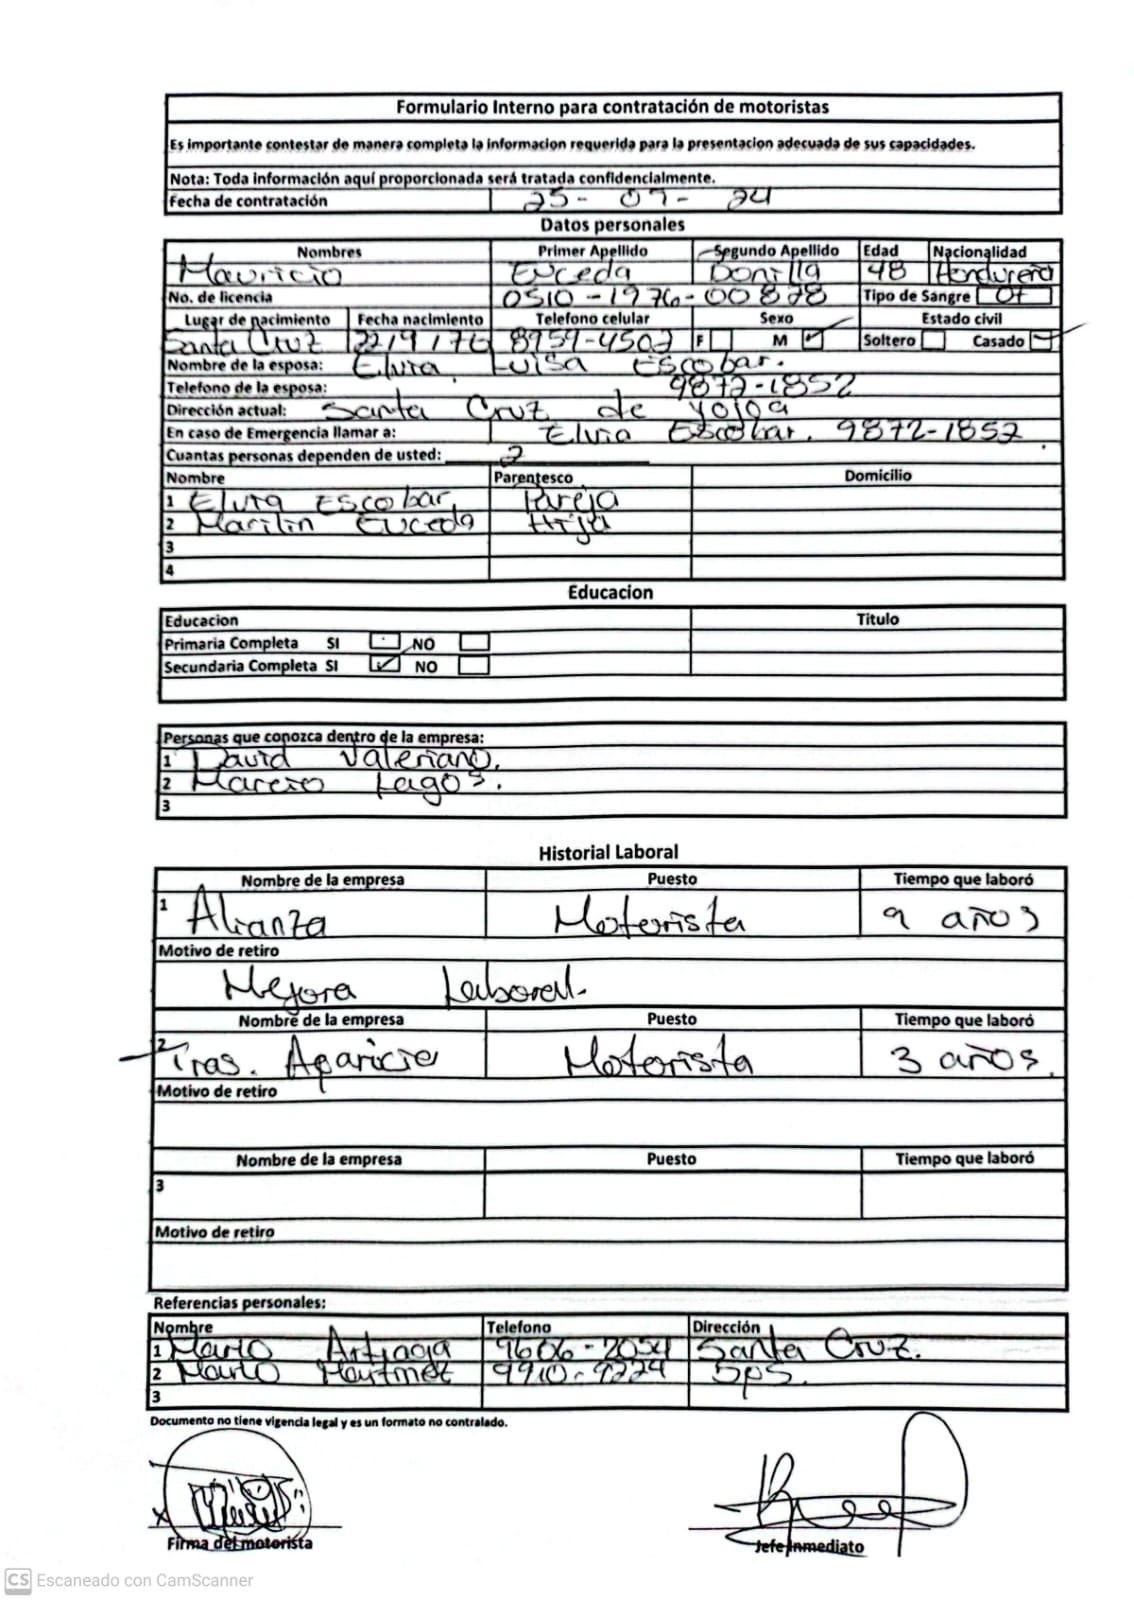 Formulario Interno para contratación de motoristas
Es importante contestar de manera completa la informacion requerida para la presentacion adecuada de sus capacidades.
Nota: Toda información aquí proporcionada será tratada confidencialmente.
Fecha de contratación 25- 07- 24
Datos personales
Nombres Primer Apellido Segundo Apellido Edad Nacionalidad
Mauricio Euceda Bonilla 48 Hondureña
No. de licencia 0510-1976-00878 Tipo de Sangre O+
Lugar de nacimiento Fecha nacimiento Telefono celular Sexo Estado civil
Santa Cruz 22/9/76 8959-4507 F M Soltero Casado
Nombre de la esposa: Elvia Luisa Escobar.
Telefono de la esposa: 9872-1852
Dirección actual: Santa Cruz de Yojoa
En caso de Emergencia llamar a: Elvia Escobar. 9872-1852
Cuantas personas dependen de usted: 2
Nombre Parentesco Domicilio
1 Elvia Escobar Pareja
2 Marilin Euceda Hija
3
4
Educacion
Educacion Titulo
Primaria Completa SI NO
Secundaria Completa SI NO
Personas que conozca dentro de la empresa:
1 David Valeriano.
2 Marcio Lagos.
3
Historial Laboral
Nombre de la empresa Puesto Tiempo que laboró
1 Alianza Motorista 9 años
Motivo de retiro
Mejora Laboral.
Nombre de la empresa Puesto Tiempo que laboró
2 Tras. Aparicio Motorista 3 años.
Motivo de retiro
Nombre de la empresa Puesto Tiempo que laboró
3
Motivo de retiro
Referencias personales:
Nombre Telefono Dirección
1 Mario Artiaga 9606-2054 Santa Cruz.
2 Mario 9910-9224 Sps.
3
Documento no tiene vigencia legal y es un formato no contralado.
X
Firma del motorista Jefe Inmediato
CS Escaneado con CamScanner